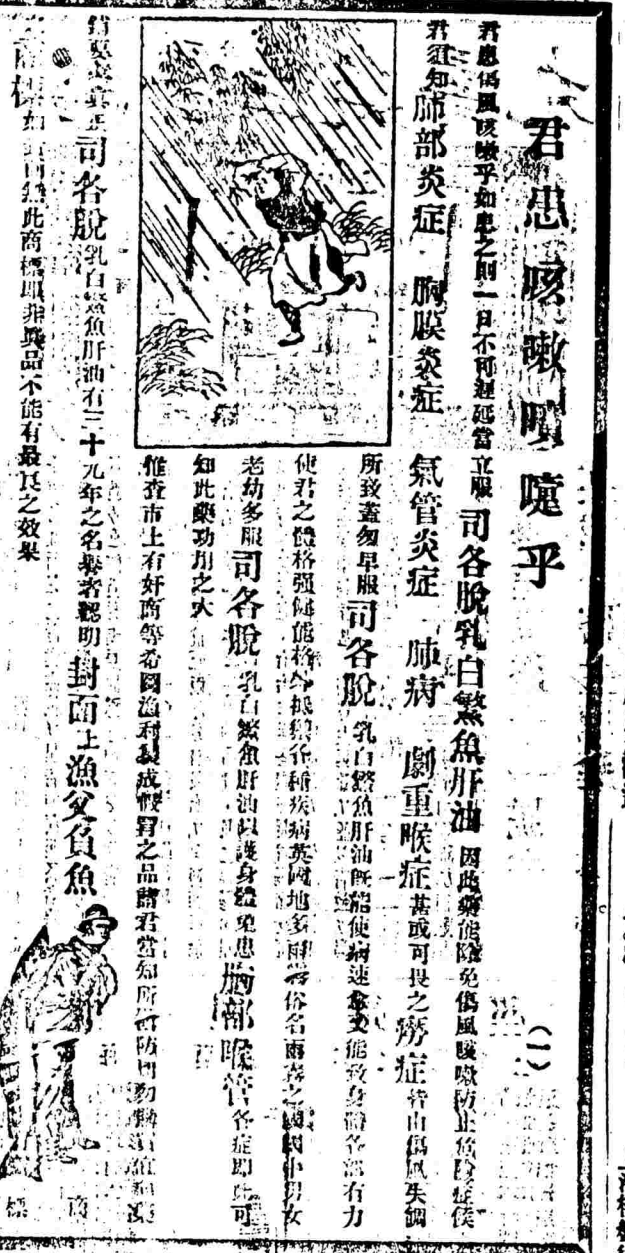 君患咳嗽噴嚏乎
(一)
君患傷風咳嗽乎如患之則一日不可遲延當立服司各脫乳白鰵魚肝油因此藥能除免傷風咳嗽防止危險症候
君須知肺部炎症 胸膜炎症 氣管炎症 肺病 劇重喉症甚或可畏之癆症皆由傷風失調
所致蓋匆早服司各脫乳白鰵魚肝油旣能使病速愈又能致身體各部有力
使君之體格强健能格外抵禦各種疾病英國地多雨霧俗名雨霧之國國中男女
老幼多服司各脫乳白鰵魚肝油以護身體免患胸部喉管各症卽此可
知此藥功用之大
惟查市上有奸商等希圖漁利製成假冒之品諸君當知所防切勿
眞正司各脫乳白鰵魚肝油有三十九年之名譽者認明封面上漁父負魚
之商標如無此商標卽非眞品不能有最良之效果
商標